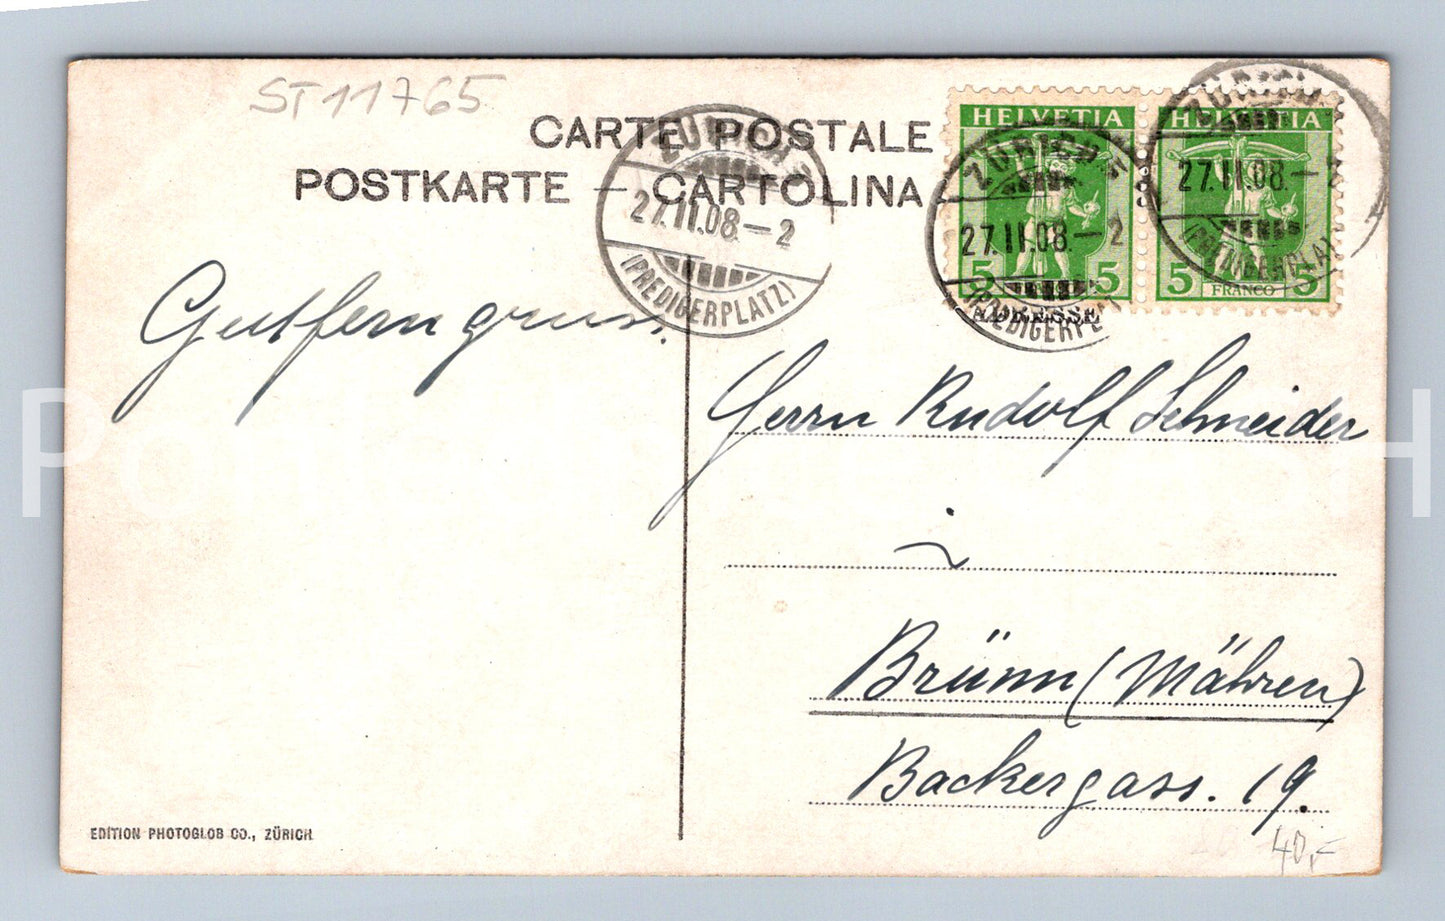 ST11765
CARTE POSTALE
POSTKARTE — CARTOLINA
HELVETIA
5 5
HELVETIA
5 FRANCO 5
ZÜRICH
27.II.08.—2
(PREDIGERPLATZ)
ZÜRICH
27.II.08.—2
(PREDIGERPL
ZÜRICH
27.II.08.—2
(PREDIGERPLA
Gutferngruss.
Herrn Rudolf Schneider
i
Brünn (Mähren)
Backergass. 19.
EDITION PHOTOGLOB CO., ZÜRICH
40,-